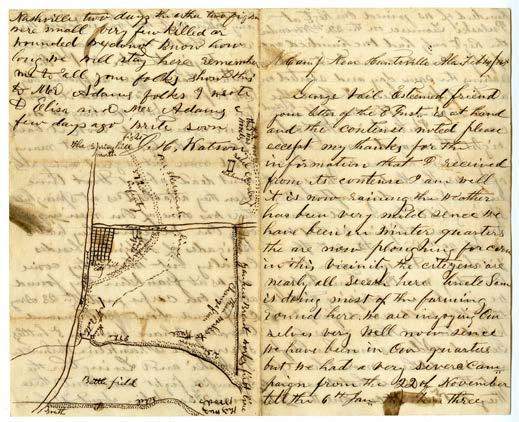 Nashville two days the other two fights
were small very few killed or
wounded we do not know how
long we will stay here remember
me to all your folks show this
to Mr Adams folks I wrote
to Eliza and Mr Adams a
few days ago write soon
Watson
The Springhill
first
North
Battle field
South
line
In Camp Near Huntsville Ala
George Vail Esteemed friend
your letter of the 8 Inst is at hand
and the contense noted please
accept my thanks for the
information that I received
from its contense I am well
it is now raining the weather
has been very mild sence we
have been in winter quarters
the are now ploughing for corn
in this vicinity the citizens are
nearly all secesh here Uncle Sam
is doing most of the farming
round here we are injoying our
selves very well now since
we have been in our quarters
but we had a very severe cam
paign from the 22 of November
till the 6th Jan three